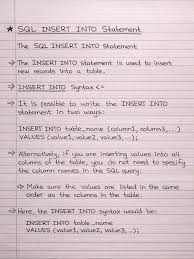 ★ SQL INSERT INTO Statement
The SQL INSERT INTO Statement
→ The INSERT INTO statement is used to insert
new records into a table.
→ INSERT INTO Syntax <=
→ It is possible to write the INSERT INTO
statement in two ways:
INSERT INTO table_name (column1, column3,...)
VALUES (value1, value2, value3,...);
→ Alternatively, if you are inserting values into all
columns of the table, you do not need to specify
the column names in the SQL query.
→ Make sure the values are listed in the same
order as the columns in the table.
→ Here, the INSERT INTO syntax would be:
INSERT INTO table_name
VALUES (value1, value2, value3,...);